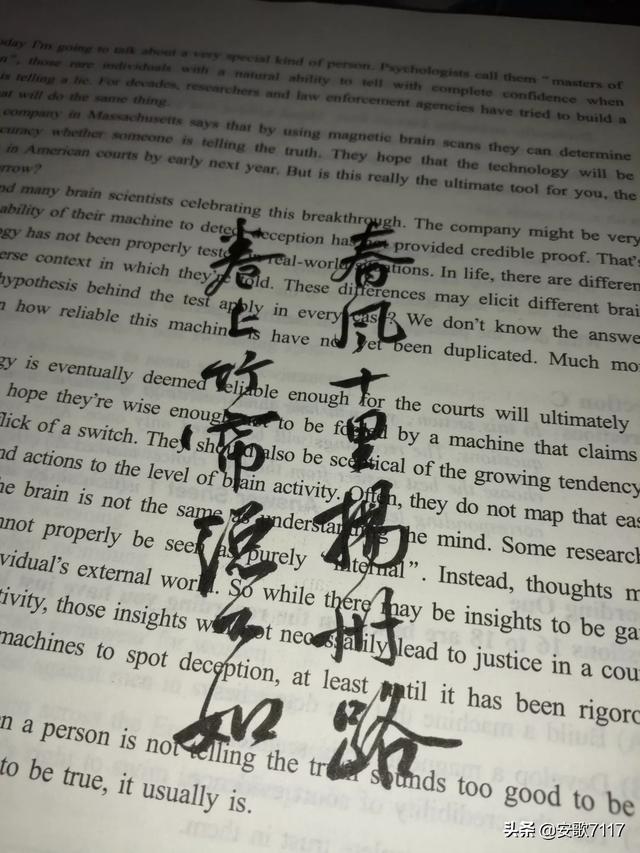 I'm going to talk about a very special kind of person. Psychologists call them "masters of
those rare individuals with a natural ability to tell with complete confidence when
is telling a lie. For decades, researchers and law enforcement agencies have tried to build a
will do the same thing.
company in Massachusetts says that by using magnetic brain scans they can determine
whether someone is telling the truth. They hope that the technology will be
in American courts by early next year. But is this really the ultimate tool for you, the
many brain scientists celebrating this breakthrough. The company might be very
ability of their machine to detect deception has not provided credible proof. That's
has not been properly tested in real-world situations. In life, there are differen
context in which they're told. These differences may elicit different brai
hypothesis behind the test apply in every case? We don't know the answe
how reliable this machine is have not yet been duplicated. Much mo
is eventually deemed reliable enough for the courts will ultimately
hope they're wise enough not to be fooled by a machine that claims
flick of a switch. They should also be sceptical of the growing tendency
actions to the level of brain activity. Often, they do not map that eas
brain is not the same as understanding the mind. Some research
properly be seen as purely "internal". Instead, thoughts m
external world. So while there may be insights to be ga
those insights will not necessarily lead to justice in a cou
machines to spot deception, at least until it has been rigoro
a person is not telling the truth sounds too good to be
to be true, it usually is.
春风十里揚州路
卷上竹帘總不如
头条 @安歌7117